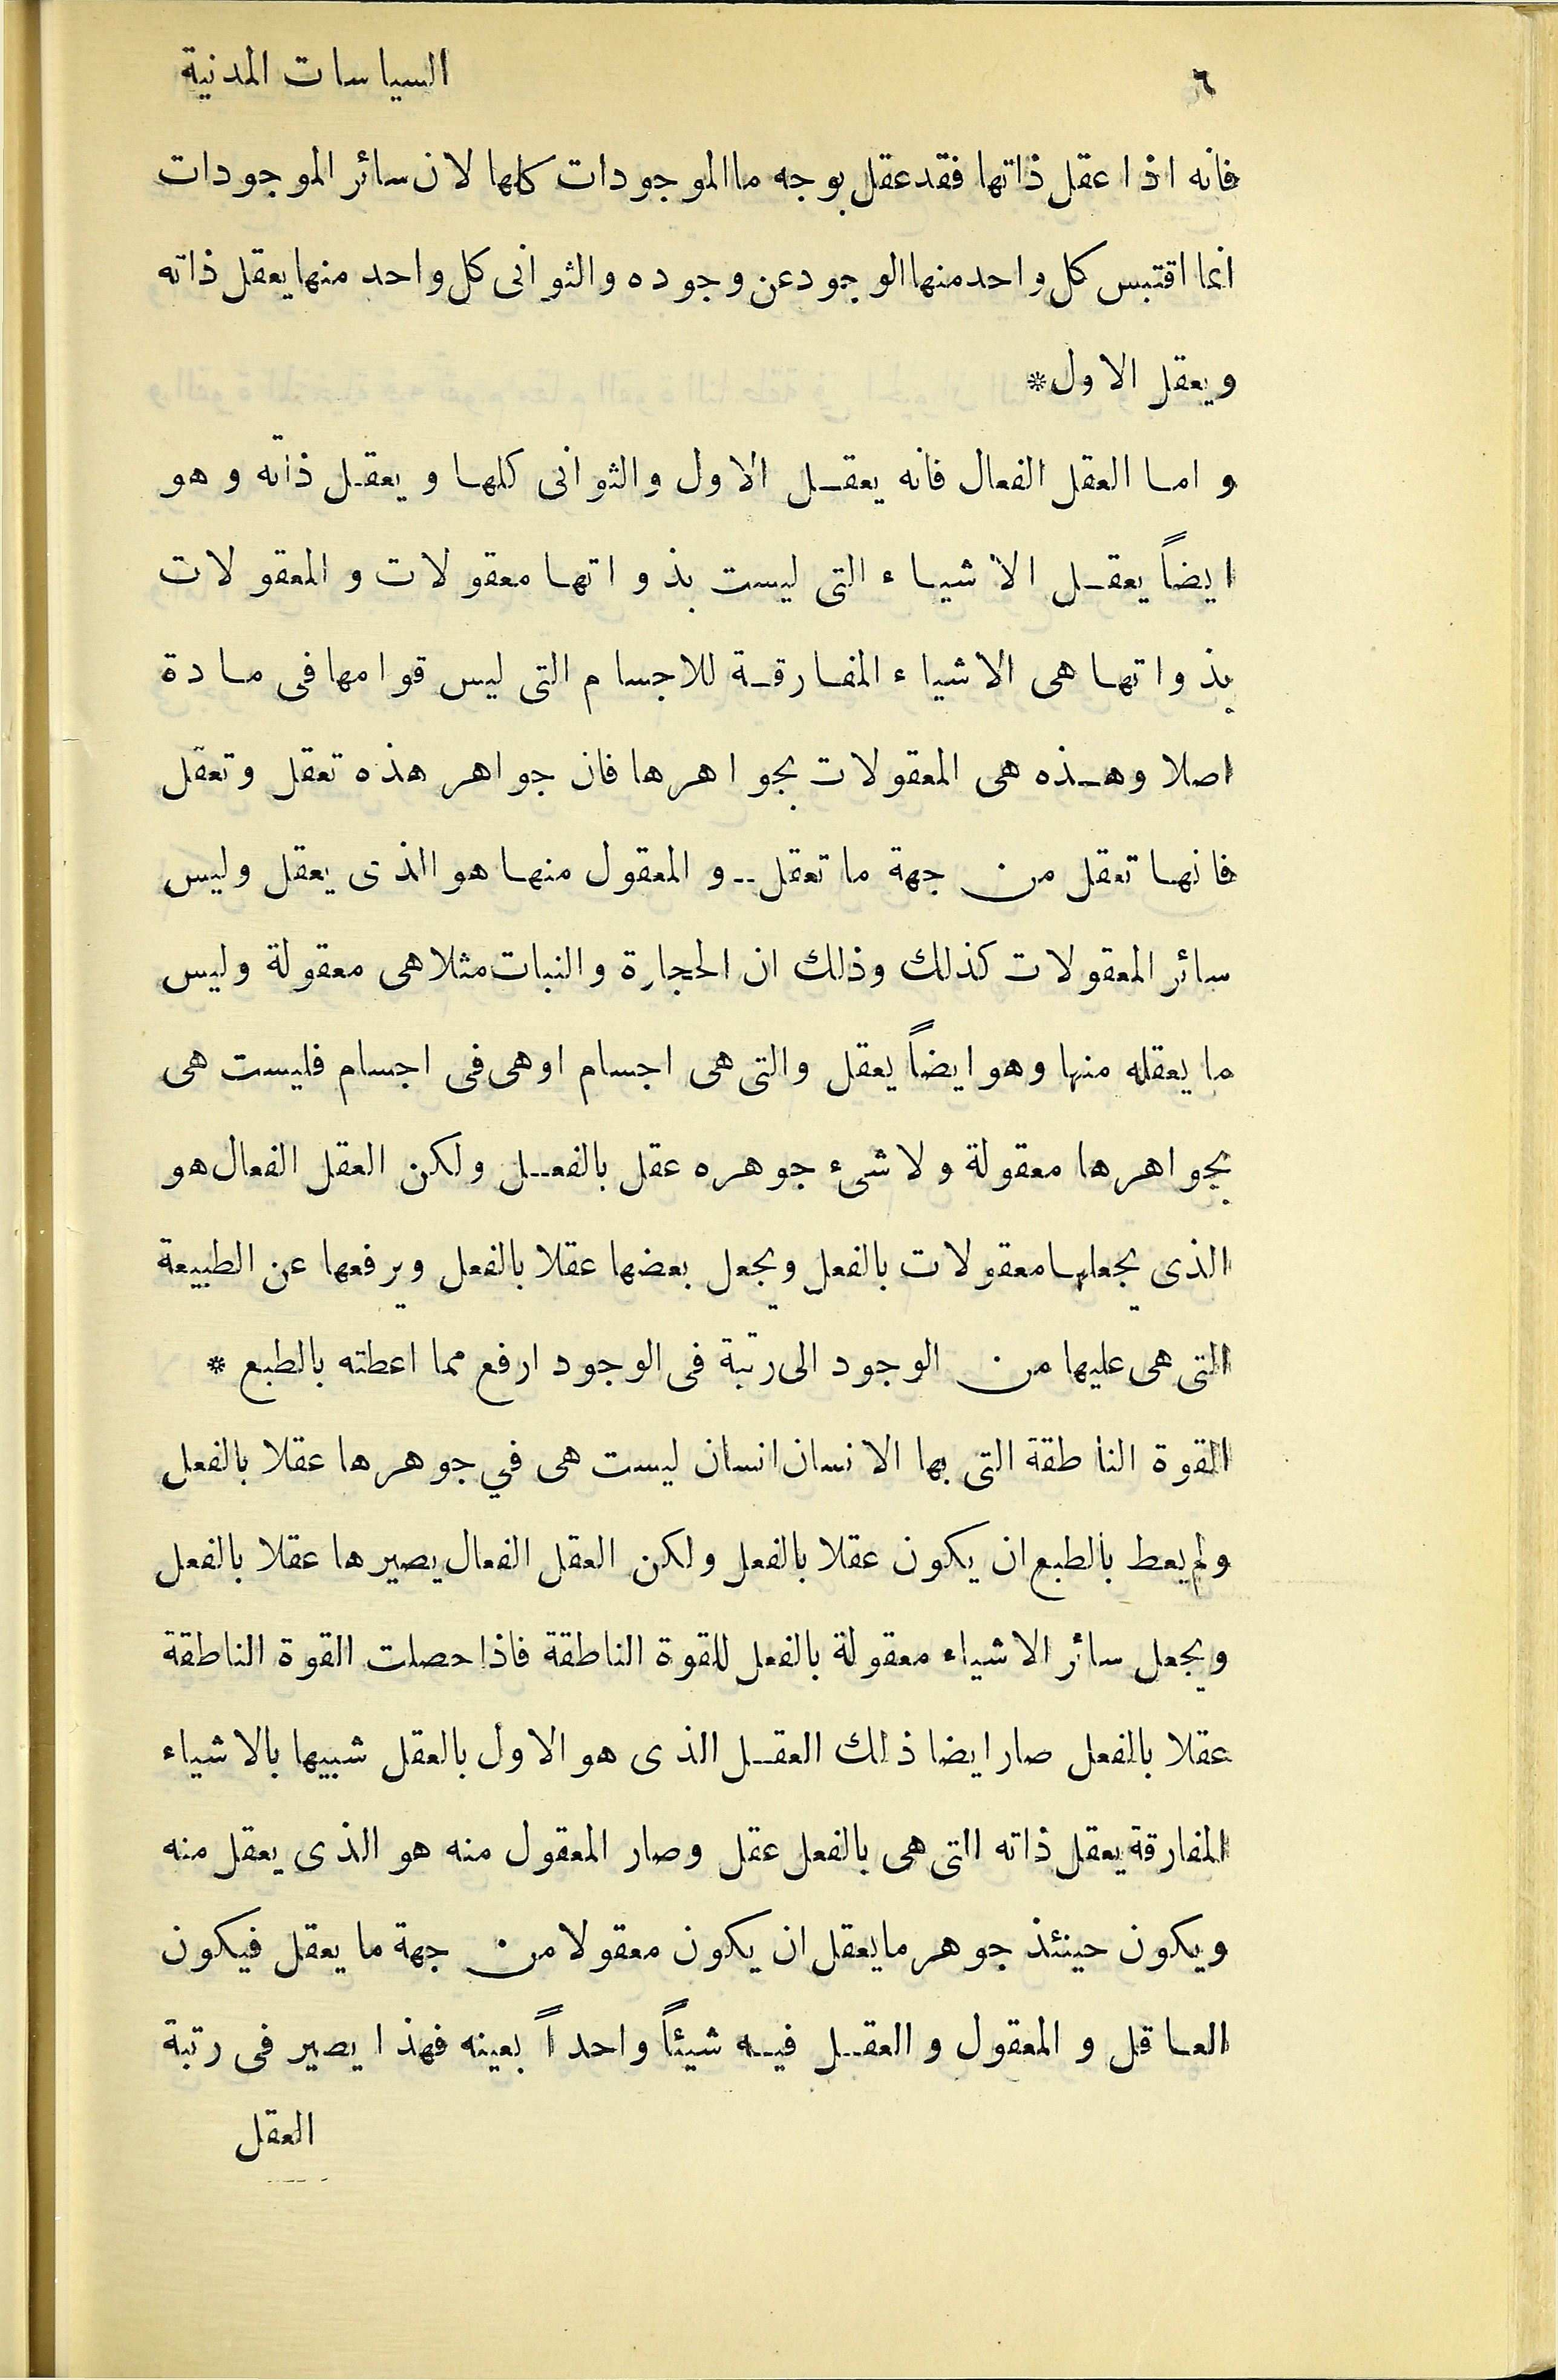 ٦
السياسات المدنية
فانه اذا عقل ذاتها فقد عقل بوجه ما الموجودات كلها لان سائر الموجودات
انما اقتبس كل واحد منها الوجود عن وجوده والثوانى كل واحد منها يعقل ذاته
ويعقل الاول*
و اما العقل الفعال فانه يعقل الاول والثوانى كلها و يعقل ذاته و هو
ايضاً يعقل الاشياء التى ليست بذواتها معقولات و المعقولات
بذواتها هى الاشياء المفارقة للاجسام التى ليس قوامها فى مادة
اصلا وهذه هى المعقولات بجواهرها فان جواهر هذه تعقل وتعقل
فانها تعقل من جهة ما تعقل -- و المعقول منها هو الذى يعقل وليس
سائر المعقولات كذلك وذلك ان الحجارة والنبات مثلا هى معقولة وليس
ما يعقله منها وهو ايضاً يعقل والتى هى اجسام او هى فى اجسام فليست هى
بجواهرها معقولة ولا شىء جوهره عقل بالفعل ولكن العقل الفعال هو
الذى يجعلها معقولات بالفعل ويجعل بعضها عقلا بالفعل ويرفعها عن الطبيعة
التى هى عليها من الوجود الى رتبة فى الوجود ارفع مما اعطته بالطبع *
القوة الناطقة التى بها الانسان انسان ليست هى في جوهرها عقلا بالفعل
ولم يعط بالطبع ان يكون عقلا بالفعل ولكن العقل الفعال يصيرها عقلا بالفعل
ويجعل سائر الاشياء معقولة بالفعل للقوة الناطقة فاذا حصلت القوة الناطقة
عقلا بالفعل صار ايضا ذلك العقل الذى هو الاول بالعقل شبيها بالاشياء
المفارقة يعقل ذاته التى هى بالفعل عقل وصار المعقول منه هو الذى يعقل منه
ويكون حينئذ جوهر ما يعقل ان يكون معقولا من جهة ما يعقل فيكون
العاقل و المعقول و العقل فيه شيئاً واحداً بعينه فهذا يصير فى رتبة
العقل